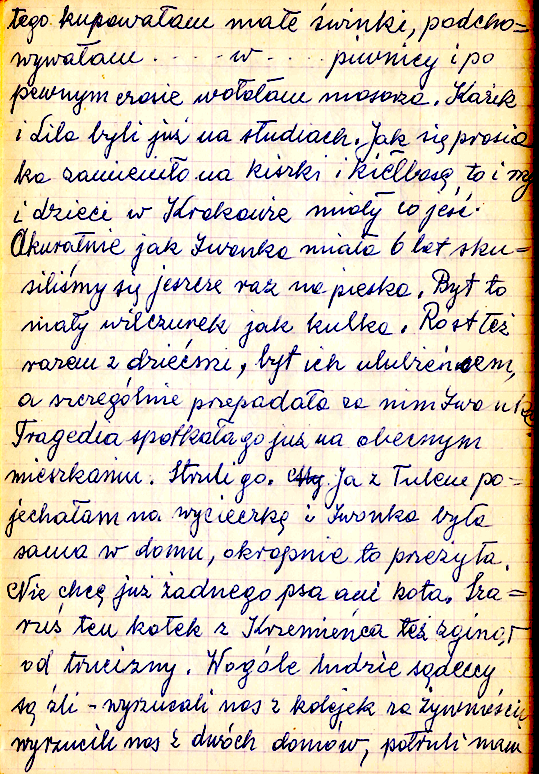 tego kupowałam małe świnki, podcho=
wywałam ..... w .... piwnicy i po
pewnym czasie wołałam masarza. Kazik
i Lila byli już na studiach. Jak się prosia
ka zamieniło na kiszki i kiełbasę, to i my
i dzieci w Krakowie miały co jeść.
Akuratnie jak Iwonka miała 6 lat sku=
siliśmy się jeszcze raz na pieska. Był to
mały wilczurek jak kulka. Rósł też
razem z dziećmi, był ich ulubieńcem,
a szczególnie przepadała za nim
Tragedia spotkała go już na obecnym
mieszkaniu. Struli go. Ja z po=
jechałam na wycieczkę i Iwonka była
sama w domu, okropnie to przeżyła.
Nie chcę już żadnego psa ani kota. Sza=
ruś ten kotek z Krzemieńca też zginął
od trucizny. Wogóle ludzie sądeccy
są źli - wyrzucali nas z kolejek za żywnością
wyrzucili nas z dwóch domów, potruli nam